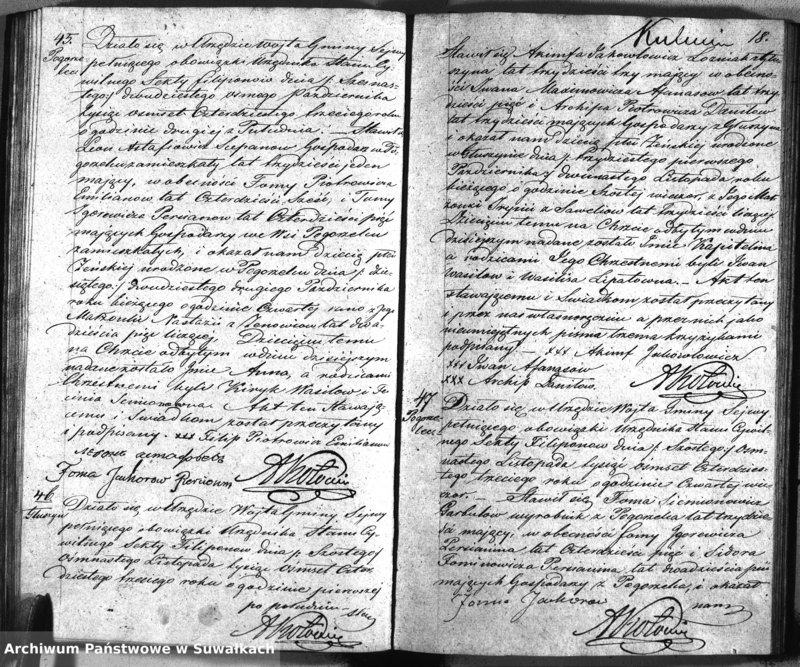 45.
Pogorze
lec
Działo się w Urzędzie Wójta Gminy Sejwy
pełniącego obowiązki Urzędnika Stanu Cy
wilnego Sekty Filiponów dnia /: Szesnas-
tego :/ dwudziestego osmego Października
tysiąc osmset Czterdziestego trzeciego roku
o godzinie drugiej z Południa. — Stawił się
Leon Astafiowicz Szczepanow Gospodarz w Po
gorzelcu zamieszkały lat trzydzieści jeden
mający, w obecności Fomy Piotrowicza
Emilianow lat Czterdzieści Sześć, i Fomy
Jgorowicza Persianow lat Czterdzieści pięć
mających Gospodarzy we Wsi Pogorzelcu
zamieszkałych, i okazał nam Dziecię płci
Żeńskiej urodzone w Pogorzelcu dnia /: dzie
siątego :/ dwudziestego drugiego Października
roku bieżącego o godzinie Czwartej rano z jego
Małżonki Nastazii z Zenowiow lat dwa-
dzieścia pięć liczącej. Dziecięciu temu
na Chrzcie odbytym w dniu dzisiejszym
nadane zostało Imie Anna, a rodzicami
Chrzestnemi byli Kiryk Wasilow i Fe
Akt ten Stawają-
cemu i Swiadkom został przeczytany
i podpisany. xxx Filip Piotrowicz Emilianow
Foma Jachorow Persianow
AKołocin
46
Głuszyn
Działo się w Urzędzie Wójta Gminy Sejwy
pełniącego obowiązki Urzędnika Stanu Cy
wilnego Sekty Filiponów dnia /: Szostego :/
Osmnastego Listopada tysiąc osmset Czter
dziestego trzeciego roku o godzinie pierwszej
po południu — Sta
AKołocin
18.
wił się Akimfa Jakowlowicz z Głu
szyna lat trzydzieści trzy mający w obecno
ści Iwana Maximowicza Afanasow lat trzy
dzieści pięć i Archipa Piotrowicza Daniłow
lat trzydzieści mających Gospodarzy z Głuszyna
i okazał nam dziecię płci Żeńskiej urodzone
w Głuszynie dnia /: trzydziestego pierwszego
Października :/ dwunastego Listopada roku
bieżącego o godzinie Szóstej wieczór, z Jego Mał
żonki Iryni z Sawelow lat trzydzieści liczącej
Dziecięciu temu na Chrzcie odbytym w dniu
dzisiejszym nadane zostało Imie Kapitolina
a rodzicami Jego Chrzestnemi byli Iwan
Wasilow i Wasilisa Lipatowna. — Akt ten
stawającemu i Swiadkom został przeczytany
i przez nas własnoręcznie a przez nich jako
nieumiejętnych pisma trzema krzyżykami
podpisany. — xxx Akimf Jakowlowicz
xxx Iwan Afanasow
xxx Archip Daniłow.
AKołocin
47
Pogorze
lec
Działo się w Urzędzie Wójta Gminy Sejwy
pełniącego obowiązki Urzędnika Stanu Cywil-
nego Sekty Filiponow dnia /: Szostego :/ Osm-
nastego Listopada tysiąc osmset Czterdzies-
tego trzeciego roku o godzinie Czwartej wie
czor. — Stawił się Foma Siemionowicz
Garbułow wyrobnik z Pogorzelca lat trzydzie
ści mający, w obecności Fomy Jgorowicza
Persianina lat Czterdzieści pięć i Sidora
Fominowicza Persianina lat dwadzieścia pięć
mających Gospodarzy z Pogorzelca, i okazał
Foma Jachorow
nam
AKołocin
Archiwum Państwowe w Suwałkach